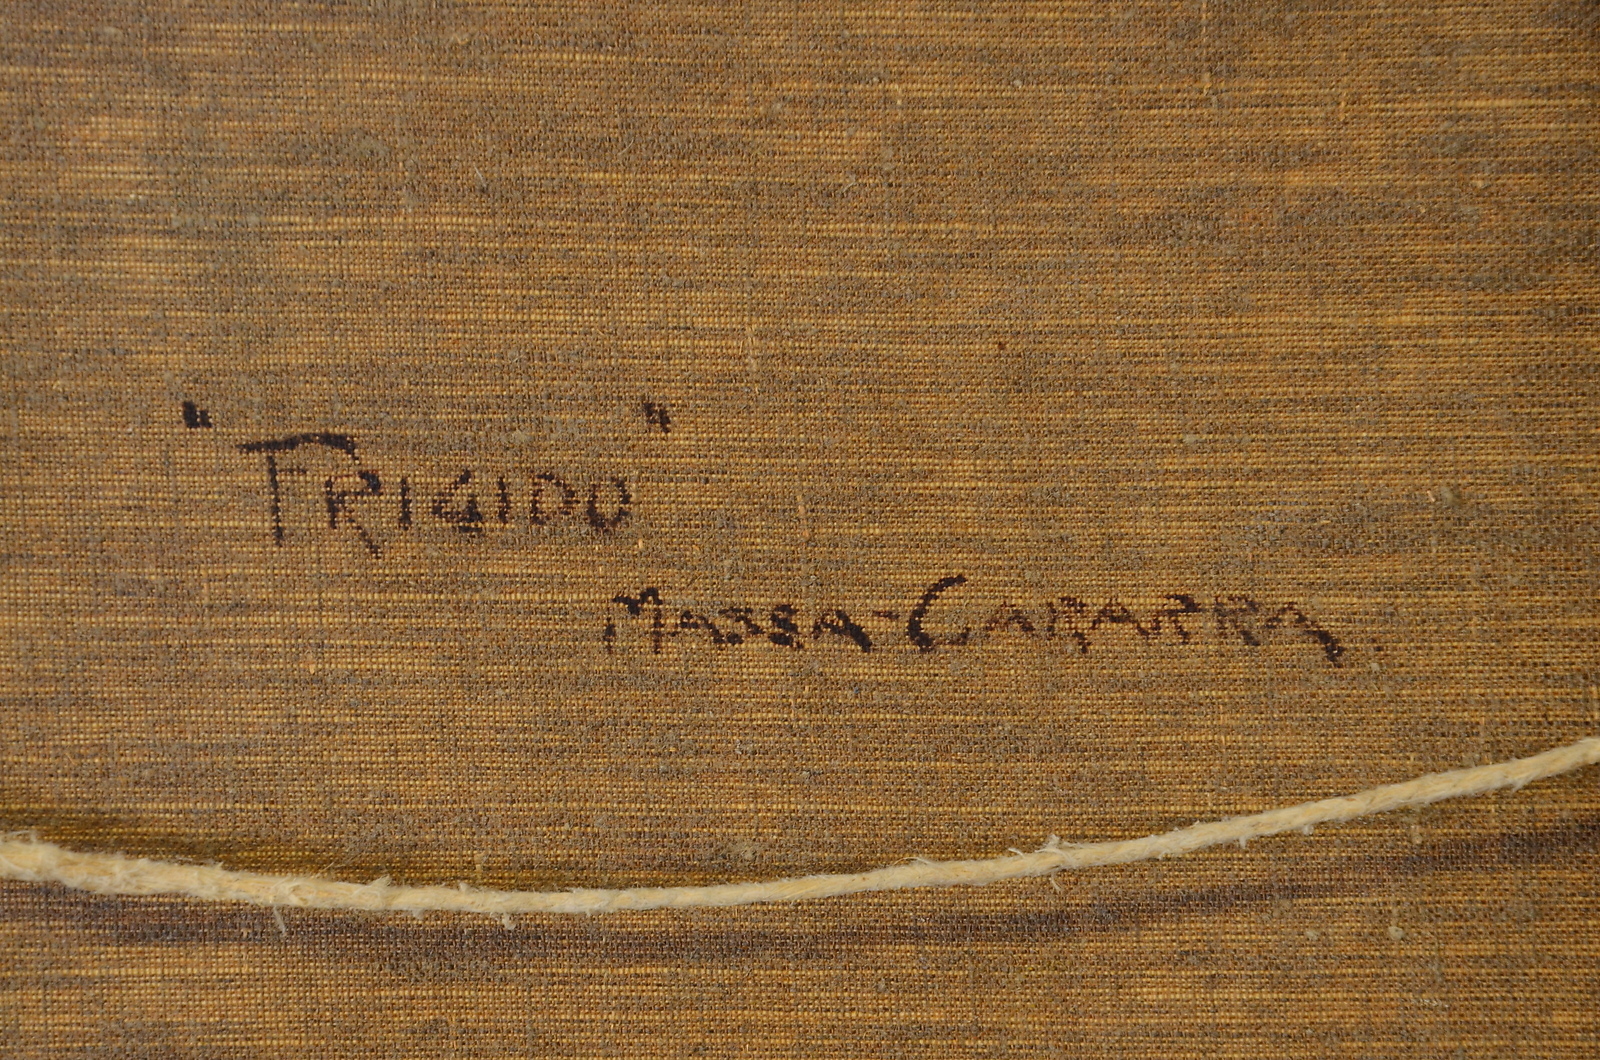 "FRIGIDO"
MASSA-CARARRA